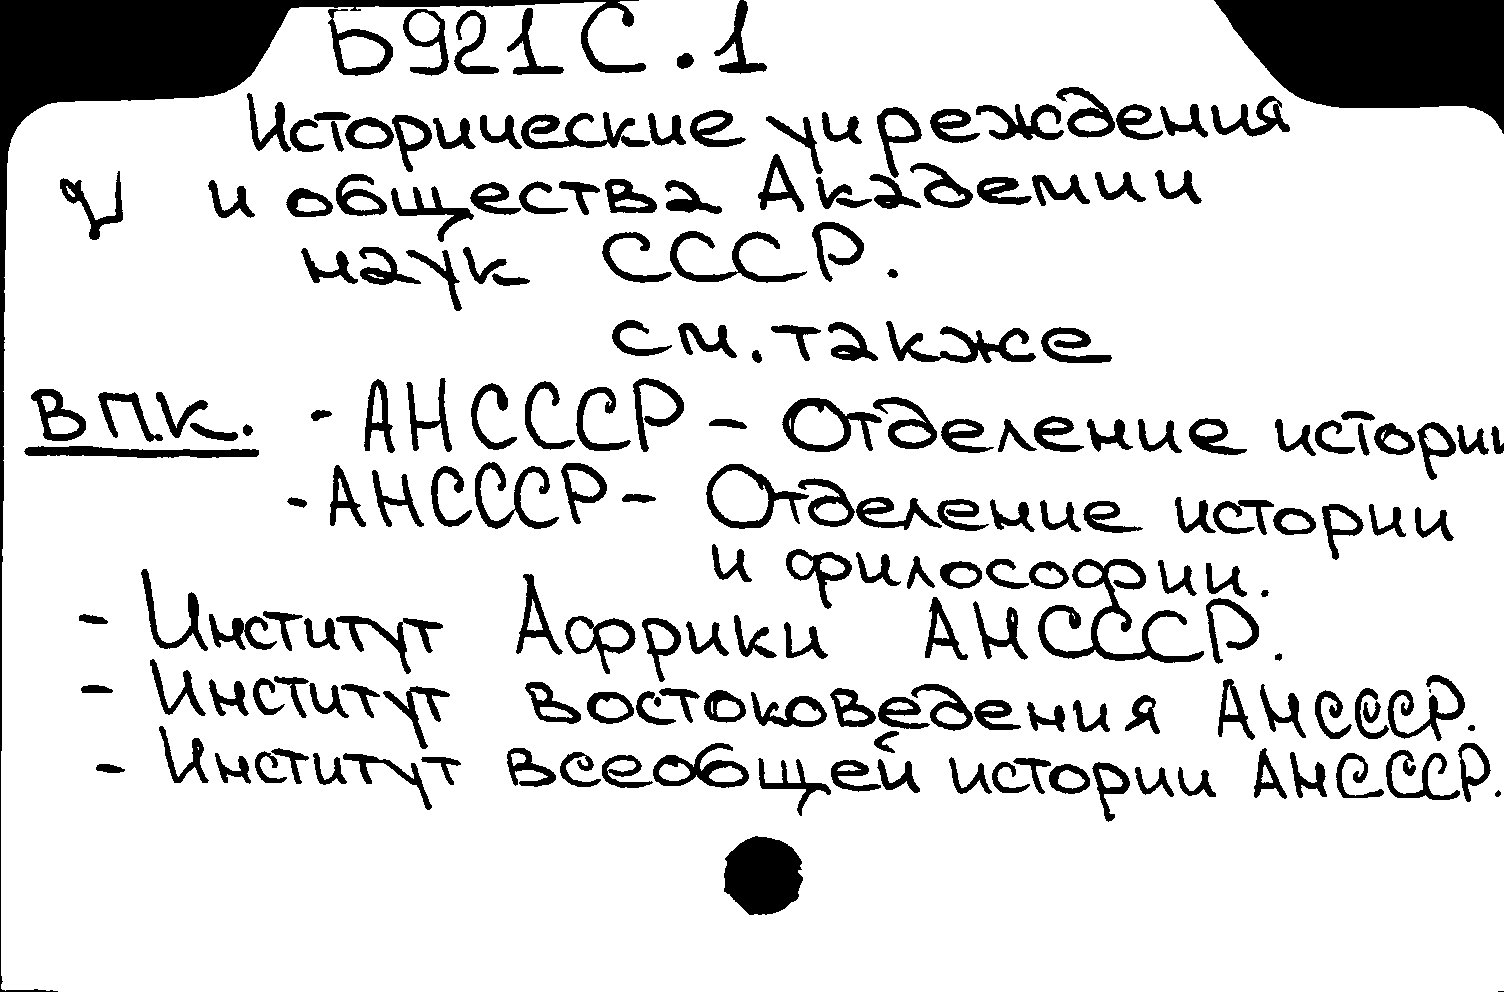 Б921С.1
Исторические учреждения
и общества Академии
наук СССР.
см. также
В П.К. - АНСССР - Отделение истории
- АНСССР - Отделение истории
и философии.
- Институт Африки АНСССР.
- Институт востоковедения АНСССР.
- Институт всеобщей истории АНСССР.